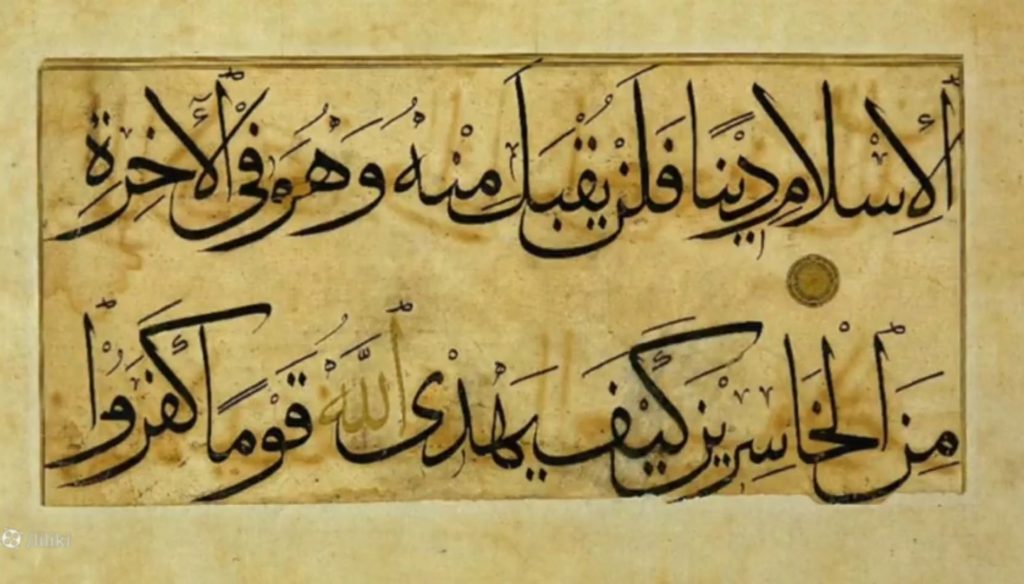 ٱلْإِسْلَامِ دِينًا فَلَنْ يُقْبَلَ مِنْهُ وَهُوَ فِي ٱلْآخِرَةِ
مِنَ ٱلْخَاسِرِينَ كَيْفَ يَهْدِي ٱللَّهُ قَوْمًا كَفَرُوا